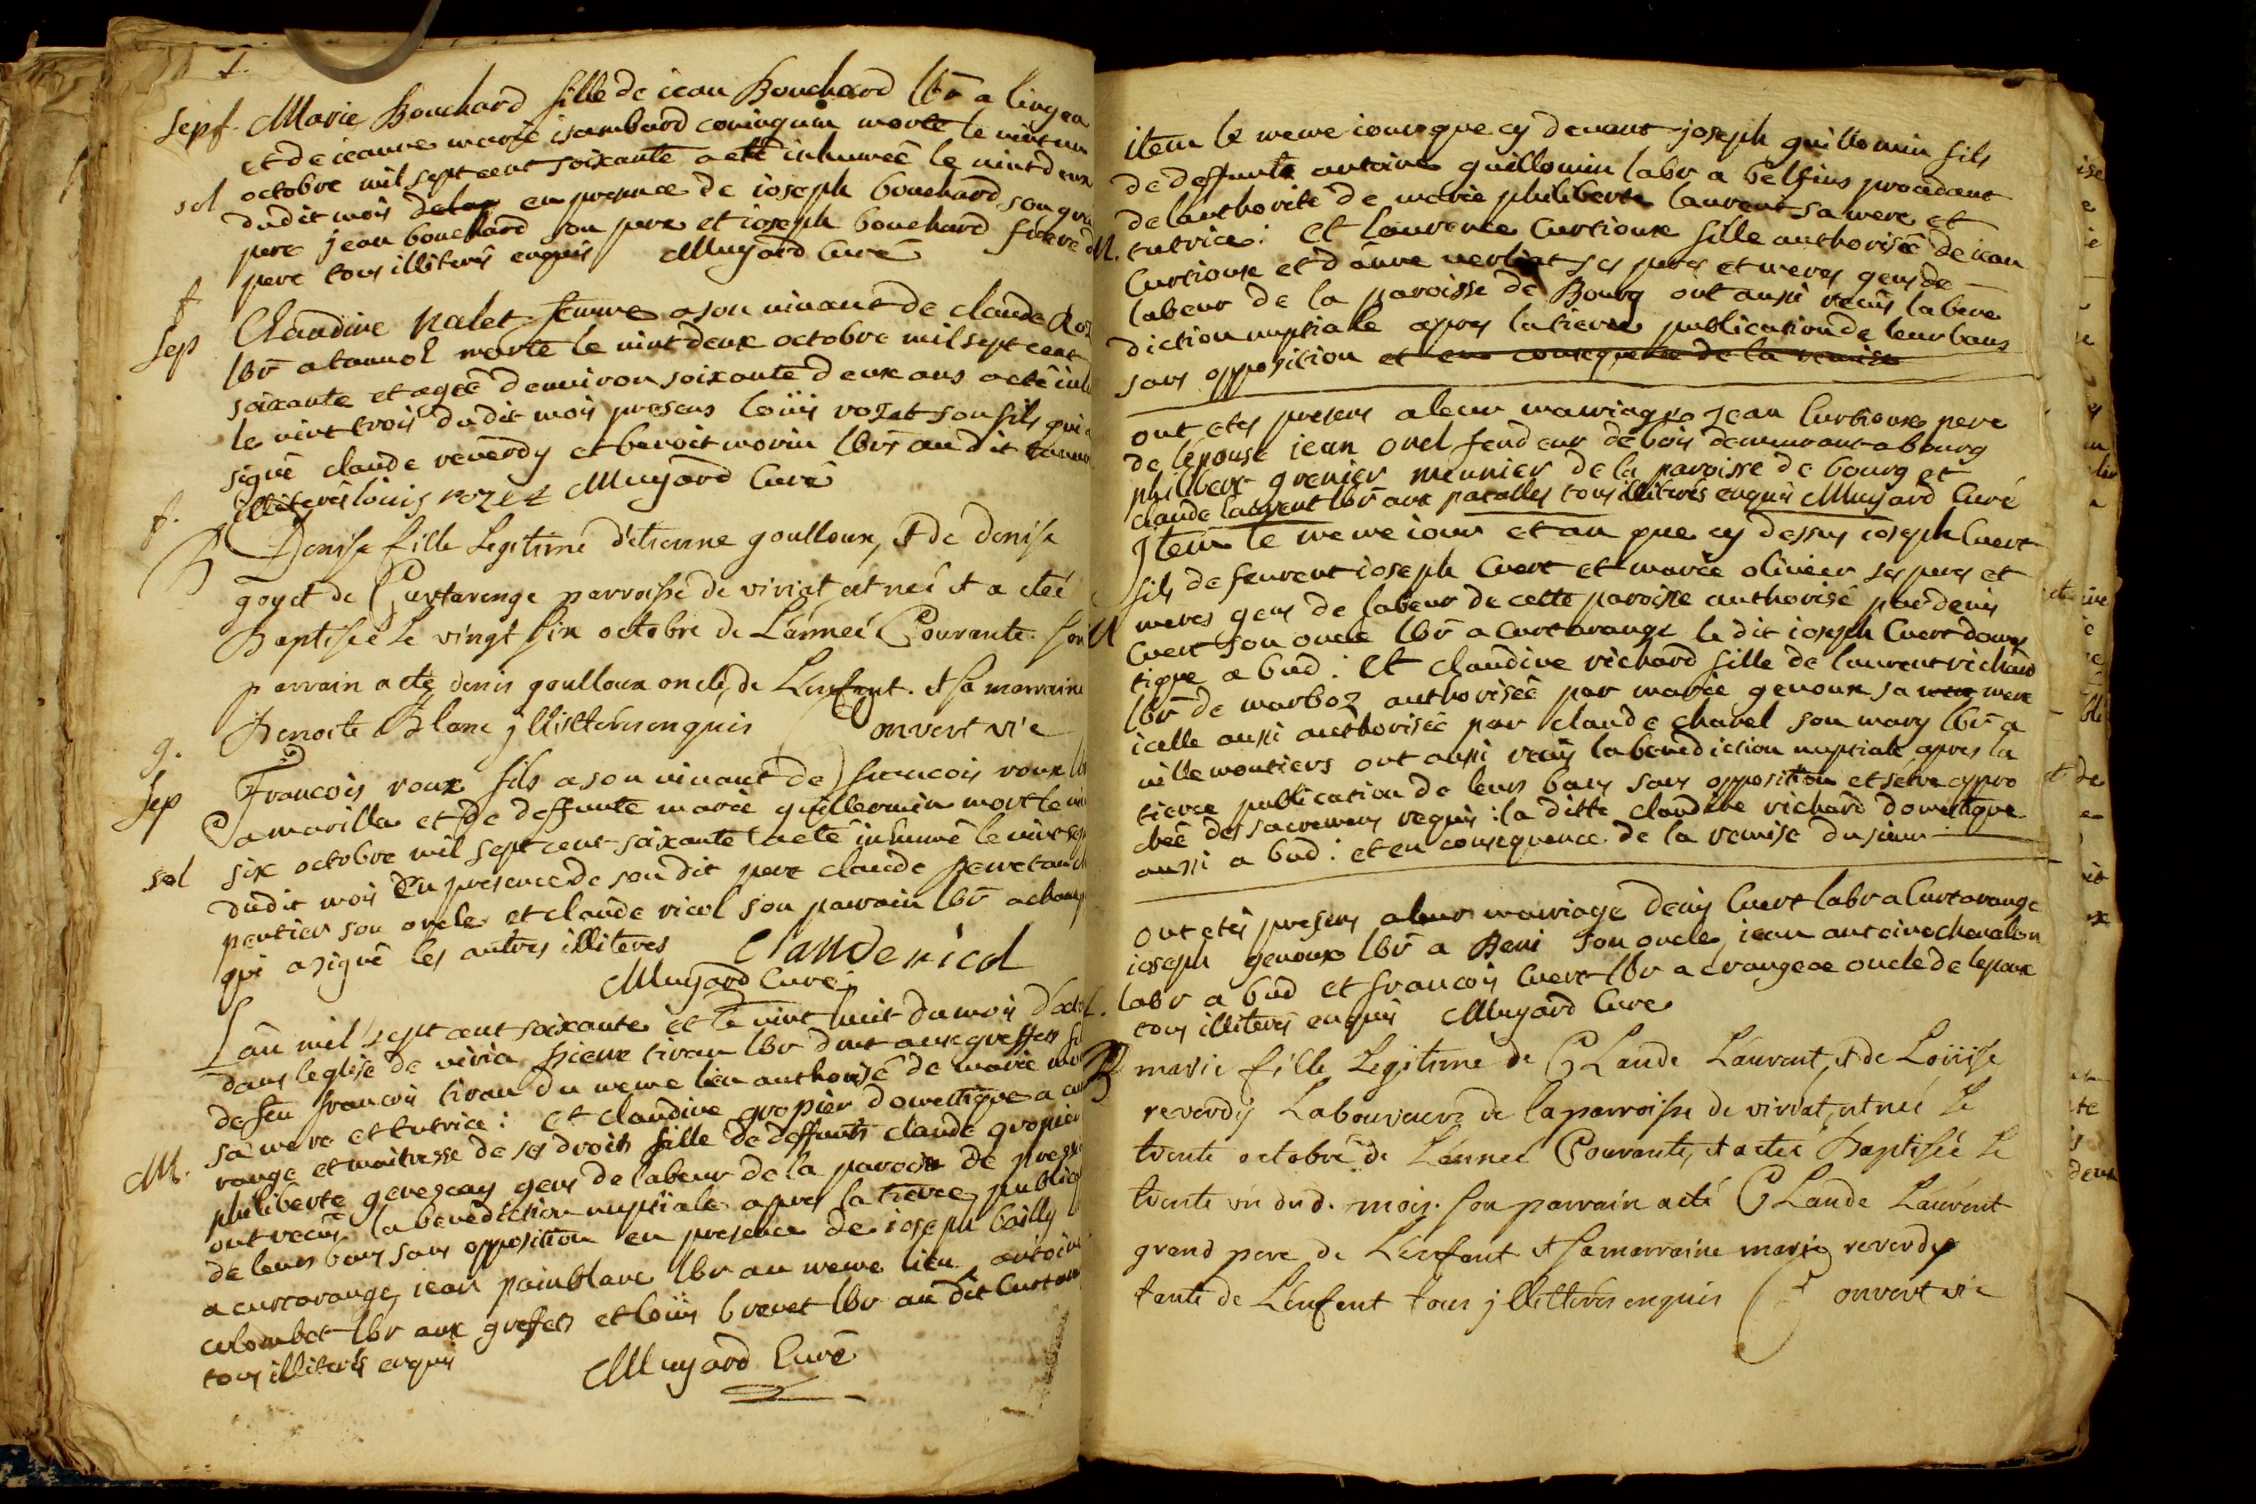 1.
sepf. Marie Bouchard fille de iean Bouchard lbr a lingen
et de ieanne marie isambard morte le vint un
octobre mil sept cent soixante a eté inhumeé le vint deux
sol
dudit mois en presence de ioseph bouchard son gra
pere jean bouchard son pere et ioseph bouchard frere d
pere tous illiterés enquis Muyard Curé
f.
sep Claudine palet femme a son vivant de claude Roz
lbr a tannol morte le vint deux octobre mil sept cent
soixante et ageé d'environ soixante deux ans a eté inh
le vint trois dudit mois presens loüis rozet son fils qui a
signé claude reverdy et benoit morin lbrs au dit
illiterés louis rozet Muyard Curé
f.
B Denise fille Legitime d'etienne goulloux, et de denise
goyet de Curtarenge parroisse de viriat est neé et a eteé
Baptiseé le vingt six octobre de L'anneé Courante. son
parrain a eté denis goulloux oncle, de L'enfant. et sa marraine
Benoite Blanc jllitterés enquis Convert vic
g.
Sep François roux fils a son vivant de francois roux lb
a marillat et de deffunte marie guillermin mort le vin
six octobre mil sept cent soixante a eté inhumé le vint sep
sol
dudit mois En presence de son dit pere claude
pentier son oncle et claude nicol son parrain lbr
qui a signé les autres illiteres Claude nicol
Muyard Curé
L'an mil sept cent soixante et le vint huit du mois d'octo
dans leglise de viria pierre tiran lbr aux greffets fil
de feu francois tiran du meme lieu authorisé de marie
sa mere et tutrice : et claudine gropier domestique a cur
M. range et maitresse de ses droits fille de deffunts claude gropier
philiberte gens de labeur de la paroisse de
ont recüs la benediction nuptiale apres la tierce public
de leurs bans sans opposition en presence de ioseph bailly
a curtarange, iean painblanc lbr au meme lieu antoine
colombet lbr aux greffets et loüis brevet lbr au dit Curtar
tous illiterés enquis Muyard Curé
item le meme iour que cy devant joseph guillomin fils
de deffunts antoine guillomin labr a procedant
de lauthorité de marie philiberte laurent sa mere et
M. tutrice : et laurence Curtioux fille authorisée de iean
Curtioux et d'anne ses peres et meres gens de
labeur de la paroisse de Bourg ont aussi recüs la bene
diction nuptiale apres la tierce publication de leur bans
sans opposition et en consequence de la remise
ont etés presens a leur mariage jean Curtioux pere
de lépouse iean orel fendeur de bois demeurant a bourg
philibert grenier meunier de la paroisse de bourg et
claude laurent lbr aux tous illiterés enquis Muyard Curé
Item le meme iour et an que cy dessus ioseph Cuert
fils de feu ioseph Cuert et marie olivier ses peres et
M meres gens de labeur de cette paroisse authorisé par denis
Cuert son oncle lbr a curtarange le dit ioseph Cuert domes
tique a bud : Et claudine richard fille de laurent richard
lbr de marboz authorisée par marie genoux sa mere
icelle aussi authorisée par claude chanel son mary lbr a
villemoutiers ont aussi recüs la benediction nuptiale apres la
tierce publication de leurs bans sans opposition et s'etre appro
cheé des sacremens requis : la ditte claudine richard domestique
aussi a bud : et en consequence de la remise du sieur
ont etés presens a leur mariage denis Cuert labr a Curtarange
ioseph genoux lbr a son oncle, iean antoine chevalon
labr a bud et francois Cuert lbr a crangeac oncle de lepoux
tous illiterés enquis Muyard Cure
B marie fille Legitime de CLaude Laurent, et de Loüise
reverdy Laboureurs de la parroisse de viriat, est neé Le
trente octobre de L'anneé Courante, et a eteé Baptiseé Le
trente un dud. mois. son parrain a eté CLaude Laurent
grand pere de L'enfant et sa marraine marie reverdy
tante de L'enfant tous jllitterés enquis Convert vic